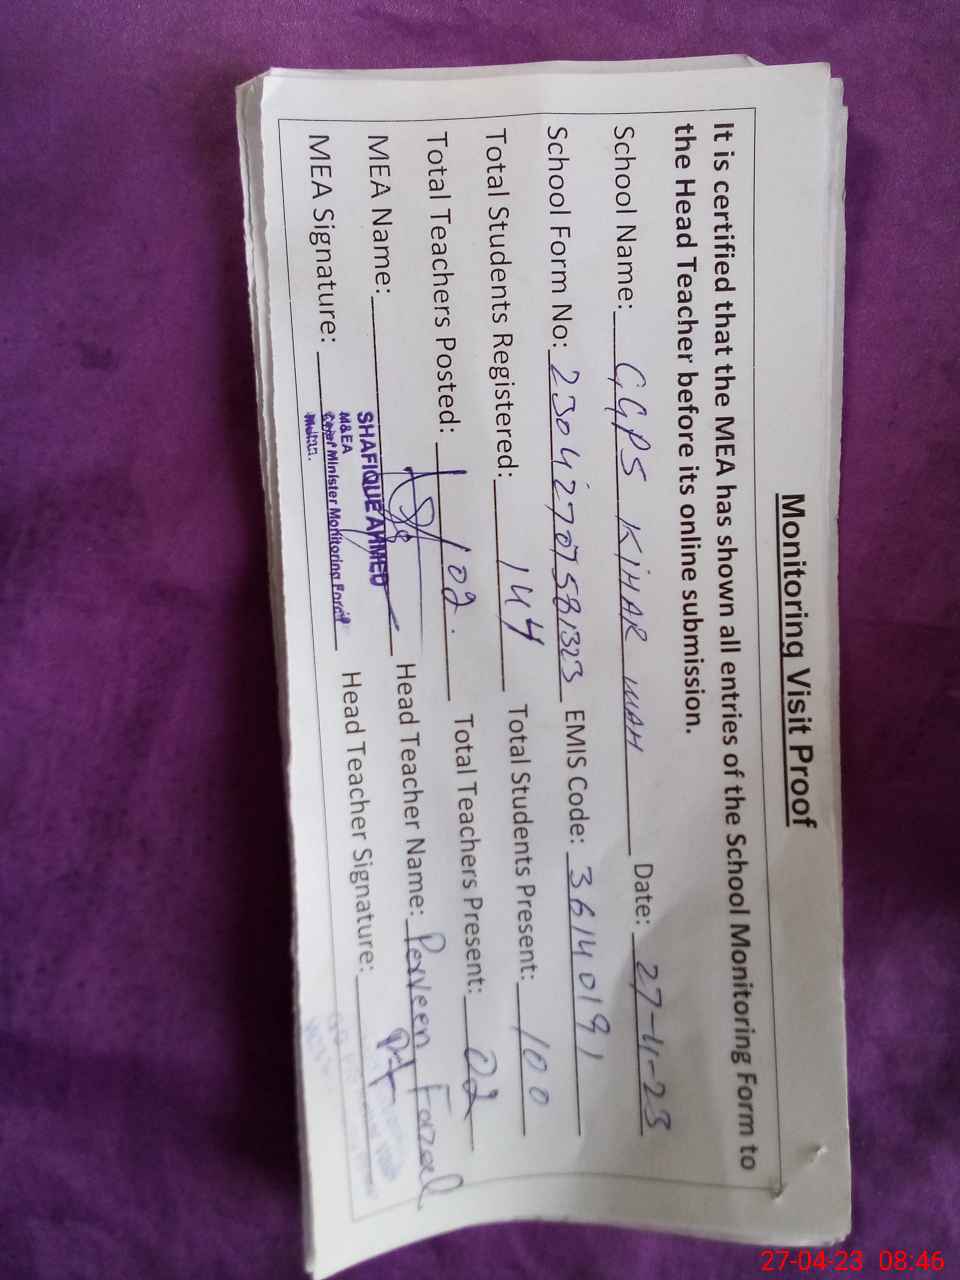 Monitoring Visit Proof
It is certified that the MEA has shown all entries of the School Monitoring Form to
the Head Teacher before its online submission.
School Name: GGPS KIHAR WAH Date: 27-4-23
School Form No: 23042707581323 EMIS Code: 36140191
Total Students Registered: 144 Total Students Present: 100
Total Teachers Posted: 02. Total Teachers Present: 02
MEA Name: SHAFIQUE AHMED Head Teacher Name: Perveen Fazal
M&EA
MEA Signature: Chief Minister Monitoring Force Head Teacher Signature:
Multan.
27-04-23 08:46